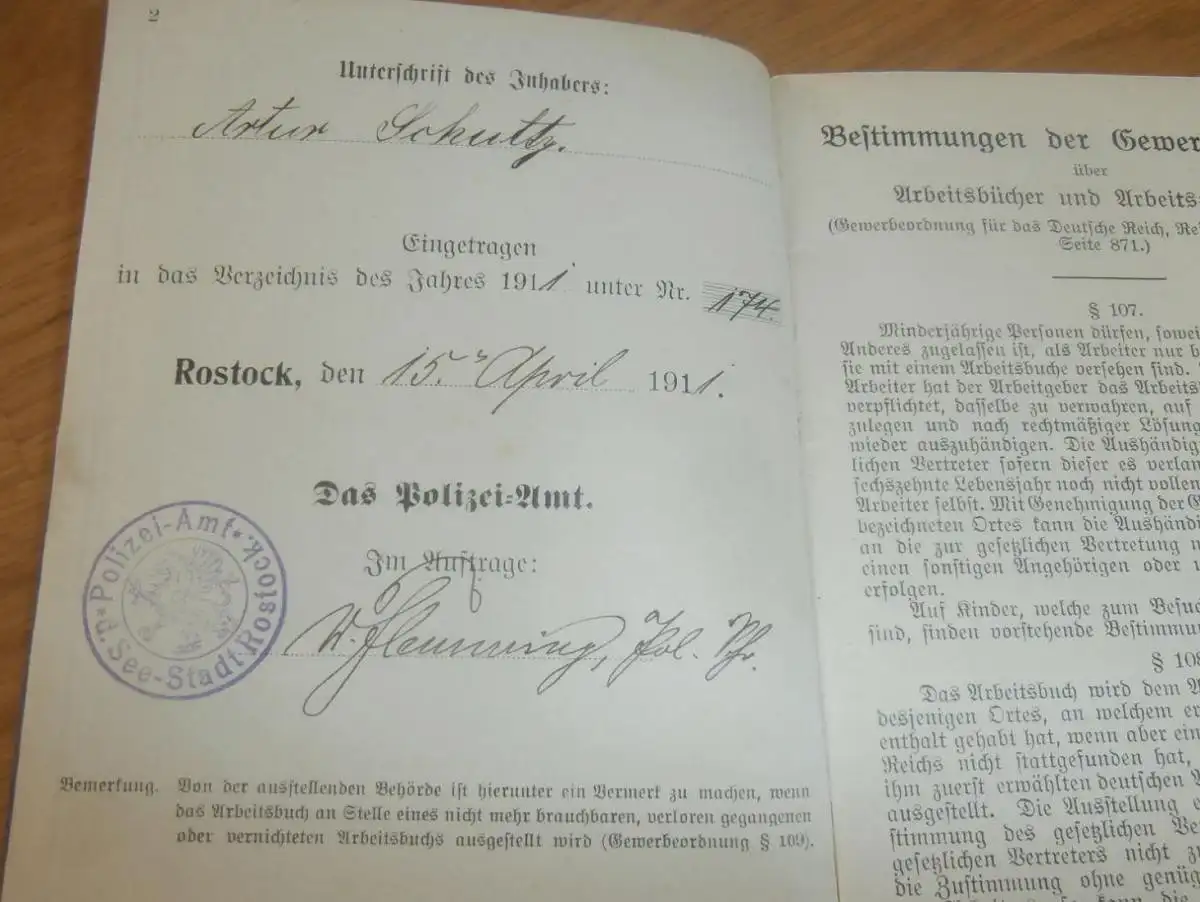 2
Unterschrift des Inhabers:
Artur Schultz.
Eingetragen
in das Verzeichnis des Jahres 1911 unter Nr. 174.
Rostock, den 15. April 1911.
Das Polizei-Amt.
Im Auftrage:
Polizei-Amt d. See-Stadt Rostock.
W. Flemming, Pol.
Bemerkung. Von der ausstellenden Behörde ist hierunter ein Vermerk zu machen, wenn
das Arbeitsbuch an Stelle eines nicht mehr brauchbaren, verloren gegangenen
oder vernichteten Arbeitsbuchs ausgestellt wird (Gewerbeordnung § 109).
Bestimmungen der Gewer
über
Arbeitsbücher und Arbeits
(Gewerbeordnung für das Deutsche Reich, Re
Seite 871.)
§ 107.
Minderjährige Personen dürfen, sowei
Anderes zugelassen ist, als Arbeiter nur b
sie mit einem Arbeitsbuche versehen sind.
Arbeiter hat der Arbeitgeber das Arbeits
verpflichtet, dasselbe zu verwahren, auf
zulegen und nach rechtmäßiger Lösung
wieder auszuhändigen. Die Aushändig
lichen Vertreter sofern dieser es verlan
sechszehnte Lebensjahr noch nicht vollen
Arbeiter selbst. Mit Genehmigung der G
bezeichneten Ortes kann die Aushändi
an die zur gesetzlichen Vertretung n
einen sonstigen Angehörigen oder u
erfolgen.
Auf Kinder, welche zum Besu
sind, finden vorstehende Bestimmu
§ 108
Das Arbeitsbuch wird dem A
desjenigen Ortes, an welchem er
enthalt gehabt hat, wenn aber ein
Reichs nicht stattgefunden hat,
ihm zuerst erwählten deutschen A
ausgestellt. Die Ausstellung e
stimmung des gesetzlichen Ver
gesetzlichen Vertreters nicht zu
die Zustimmung ohne genüg